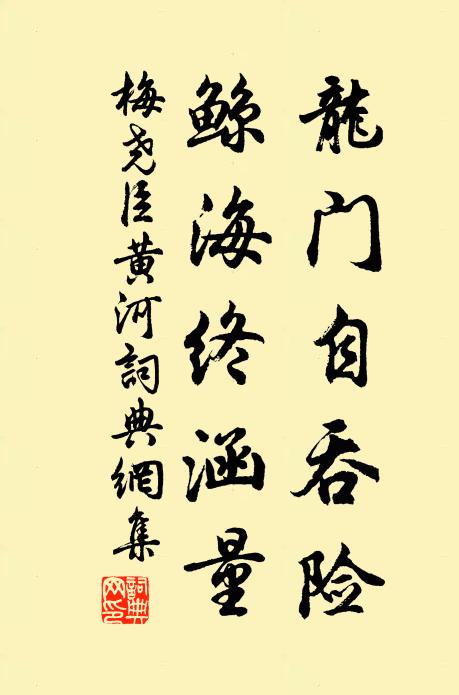 龍门自吞险
鲸海终涵量
梅尧臣黄河詞典網集
詞典网印